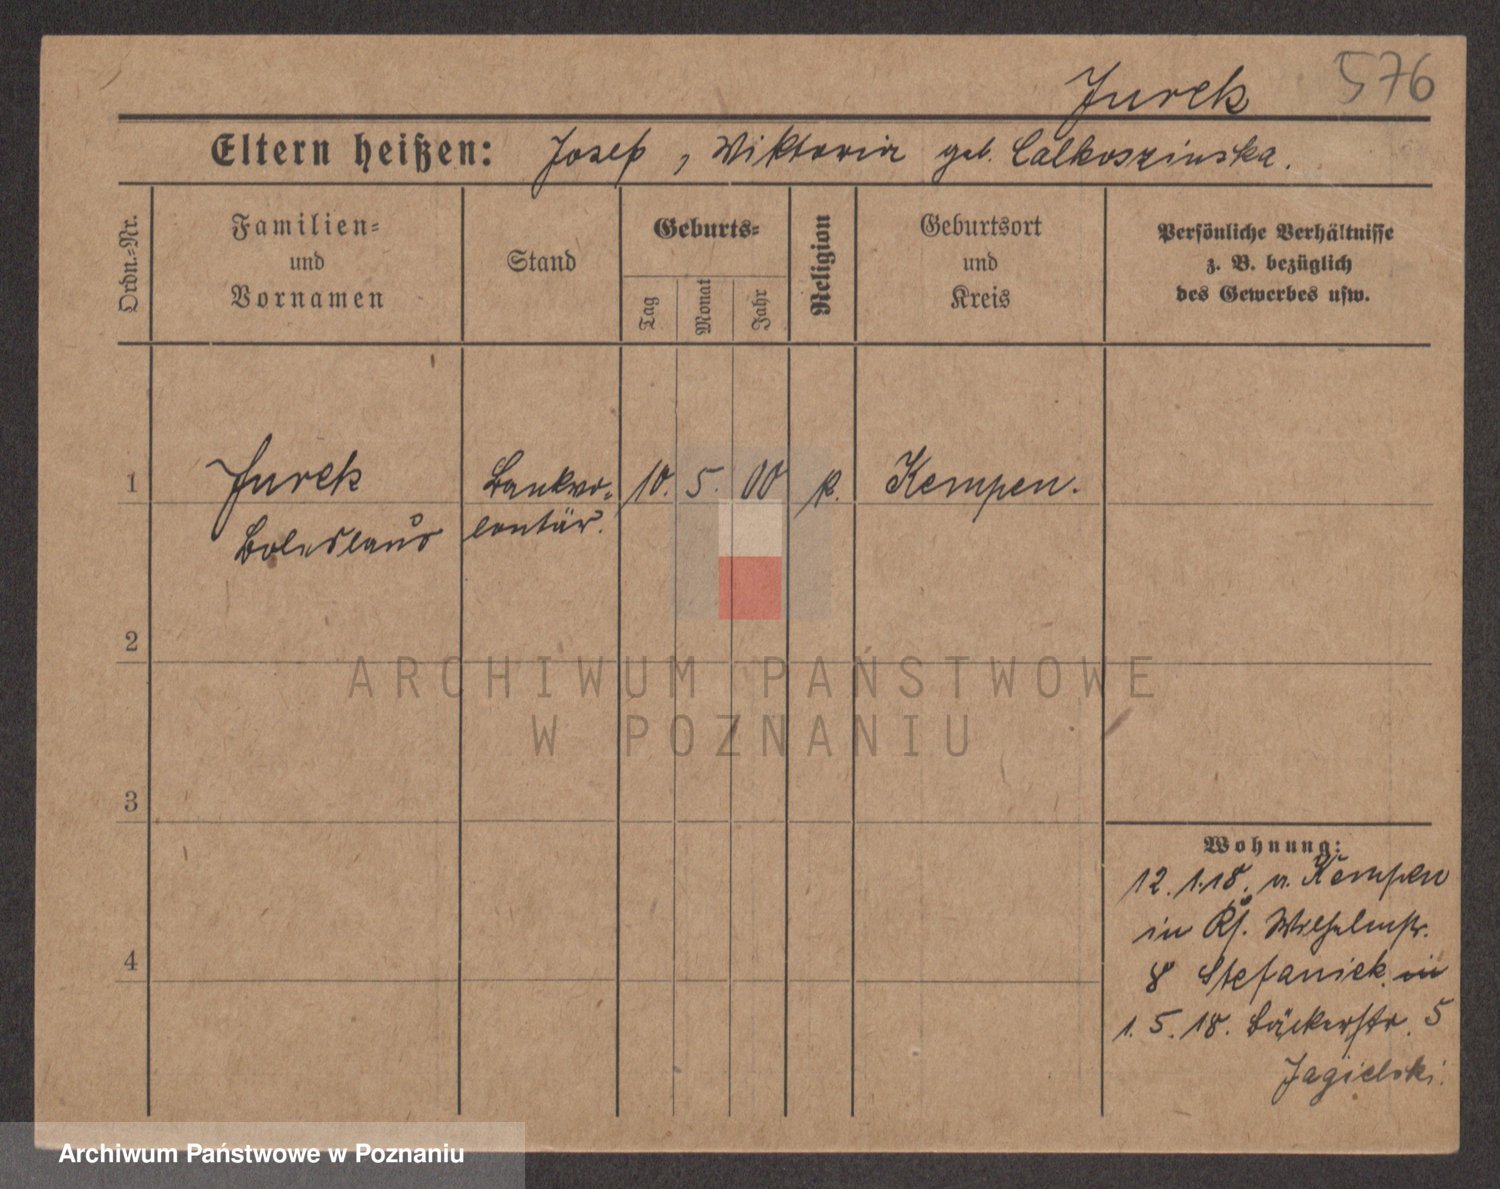 576
Jurek
Eltern heißen: Josef, Wiktoria geb. Calkoszinska.
Ordn.-Nr.
Familien-
und
Vornamen
Stand
Geburts-
Tag
Monat
Jahr
Religion
Geburtsort
und
Kreis
Persönliche Verhältnisse
z. B. bezüglich
des Gewerbes usw.
1 Jurek Bankvo- 10. 5. 00 k. Kempen.
Boleslaus lontär.
2
3
4
Wohnung:
12. 1. 18. v. Kempen
in Wilhelmstr.
8 Stefaniek in
1. 5. 18. Bäckerstr. 5
Jagielski.
ARCHIWUM PAŃSTWOWE
W POZNANIU
Archiwum Państwowe w Poznaniu